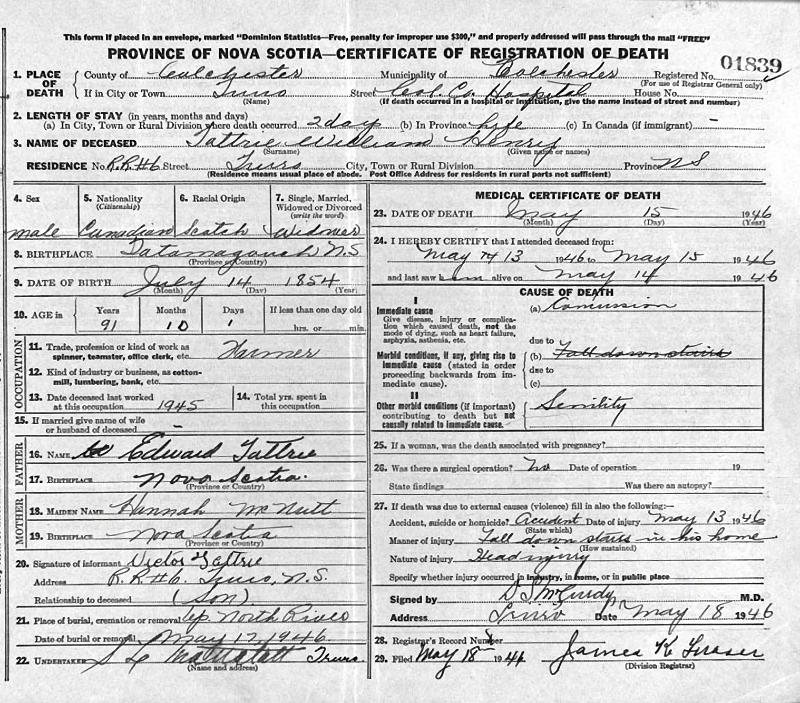 This form if placed in an envelope, marked "Dominion Statistics—Free, penalty for improper use $300," and properly addressed will pass through the mail "FREE"
PROVINCE OF NOVA SCOTIA—CERTIFICATE OF REGISTRATION OF DEATH
01839
1. PLACE OF DEATH
County of Colchester Municipality of Colchester Registered No.
(For use of Registrar General only)
If in City or Town Truro Street Col. Co. Hospital House No.
(Name) (If death occurred in a hospital or institution, give the name instead of street and number)
2. LENGTH OF STAY (in years, months and days)
(a) In City, Town or Rural Division where death occurred 2 day (b) In Province life (c) In Canada (if immigrant) —
3. NAME OF DECEASED Tattrie William Henry
(Surname) (Given name or names)
RESIDENCE No. R.R.#6 Street Truro City, Town or Rural Division Province NS
(Residence means usual place of abode. Post Office Address for residents in rural parts not sufficient)
4. Sex
male
5. Nationality
(Citizenship)
Canadian
6. Racial Origin
Scotch
7. Single, Married, Widowed or Divorced
(write the word)
Widower
8. BIRTHPLACE Tatamagouch N.S
(Province or Country)
9. DATE OF BIRTH July 14 1854
(Month) (Day) (Year)
10. AGE in
Years Months Days If less than one day old
91 10 1 hrs. or min.
OCCUPATION
11. Trade, profession or kind of work as spinner, teamster, office clerk, etc. Farmer
12. Kind of industry or business, as cotton-mill, lumbering, bank, etc.
13. Date deceased last worked at this occupation 1945
14. Total yrs. spent in this occupation
15. If married give name of wife or husband of deceased —
FATHER
16. NAME Edward Tattrie
17. BIRTHPLACE Nova Scotia
(Province or Country)
MOTHER
18. MAIDEN NAME Hannah McNutt
19. BIRTHPLACE Nova Scotia
(Province or Country)
20. Signature of informant Victor Tattrie
Address R.R.#6. Truro, N.S.
Relationship to deceased (Son)
21. Place of burial, cremation or removal North River
Date of burial or removal May 17, 1946
22. UNDERTAKER Truro.
(Name and address)
MEDICAL CERTIFICATE OF DEATH
23. DATE OF DEATH May 15 1946
(Month) (Day) (Year)
24. I HEREBY CERTIFY that I attended deceased from:
May 13 1946 to May 15 1946
and last saw h m alive on May 14 1946
CAUSE OF DEATH
I
Immediate cause
Give disease, injury or complication which caused death, not the mode of dying, such as heart failure, asphyxia, asthenia, etc.
(a)
due to
Morbid conditions, if any, giving rise to immediate cause (stated in order proceeding backwards from immediate cause).
(b) Fall down stairs
due to
(c)
II
Other morbid conditions (if important) contributing to death but not causally related to immediate cause.
Senility
25. If a woman, was the death associated with pregnancy?
26. Was there a surgical operation? no Date of operation 19
State findings Was there an autopsy?
27. If death was due to external causes (violence) fill in also the following:—
Accident, suicide or homicide? Accident Date of injury May 13 1946
(State which)
Manner of injury Fall down stairs in his home
(How sustained)
Nature of injury Head injury
Specify whether injury occurred in industry, in home, or in public place
Signed by D S McCurdy M.D.
Address Truro Date May 18 1946
28. Registrar's Record Number
29. Filed May 18 194 James K Fraser
(Division Registrar)